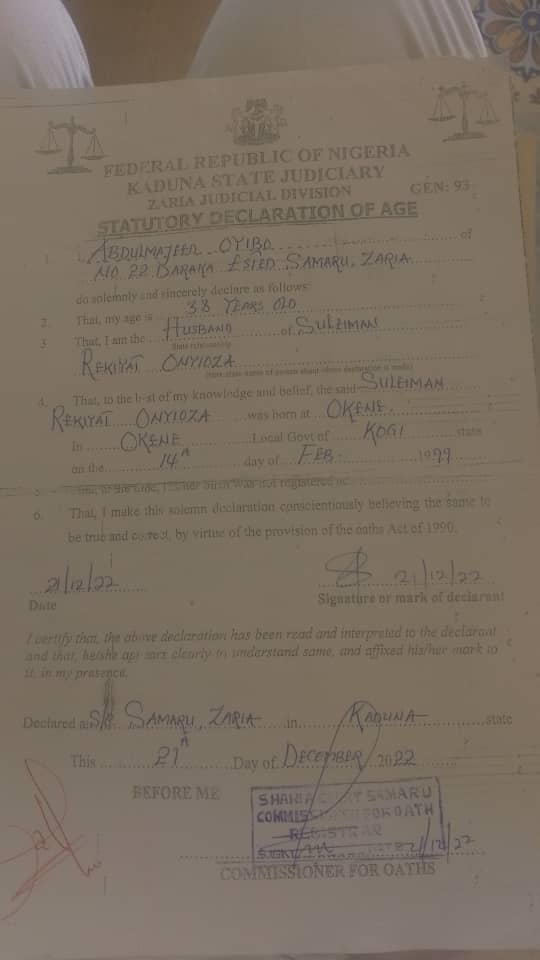 FEDERAL REPUBLIC OF NIGERIA
KADUNA STATE JUDICIARY
ZARIA JUDICIAL DIVISION
GEN: 93
STATUTORY DECLARATION OF AGE
1. ABDULMAJEED OYIBO of
NO 22 DARAKA ESTED SAMARU, ZARIA
do solemnly and sincerely declare as follows:
2. That, my age is 38 YEARS OLD
3 That, I am the HUSBAND of SULEIMAN
State relationship
REKIYAT ONYIOZA
(Here state name of person about whom declaration is made)
4. That, to the best of my knowledge and belief, the said SULEIMAN
REKIYAT ONYIOZA was born at OKENE
In OKENE Local Govt of KOGI state
on the 14th day of FEB. 1999
birth was not registered
6. That, I make this solemn declaration conscientiously believing the same to
be true and correct, by virtue of the provision of the oaths Act of 1990.
21/12/22 21/12/22
Date Signature or mark of declarant
I certify that, the above declaration has been read and interpreted to the declarant
and that, he/she appears clearly to understand same, and affixed his/her mark to
it, in my presence.
Declared at S/C SAMARU, ZARIA in KADUNA state
This 21st Day of DECEMBER 2022
BEFORE ME
SHARIA COURT SAMARU
COMMISSIONER FOR OATH
REGISTRAR
SIGN DATE 21/12/22
COMMISSIONER FOR OATHS